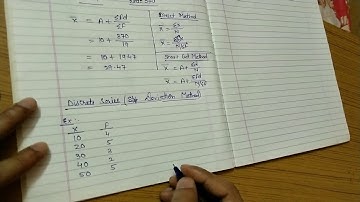 x̄ = A + Σfd/Σf
= 10 + 370/19
= 10 + 19.47
= 29.47
Direct Method
x̄ = Σx/N
Short Cut Method
x̄ = A + Σd/N
x̄ = A + Σfd/N/Σf
Discrete Series (Step Deviation Method)
Ex:-
X F
10 4
20 5
30 3
40 2
50 5